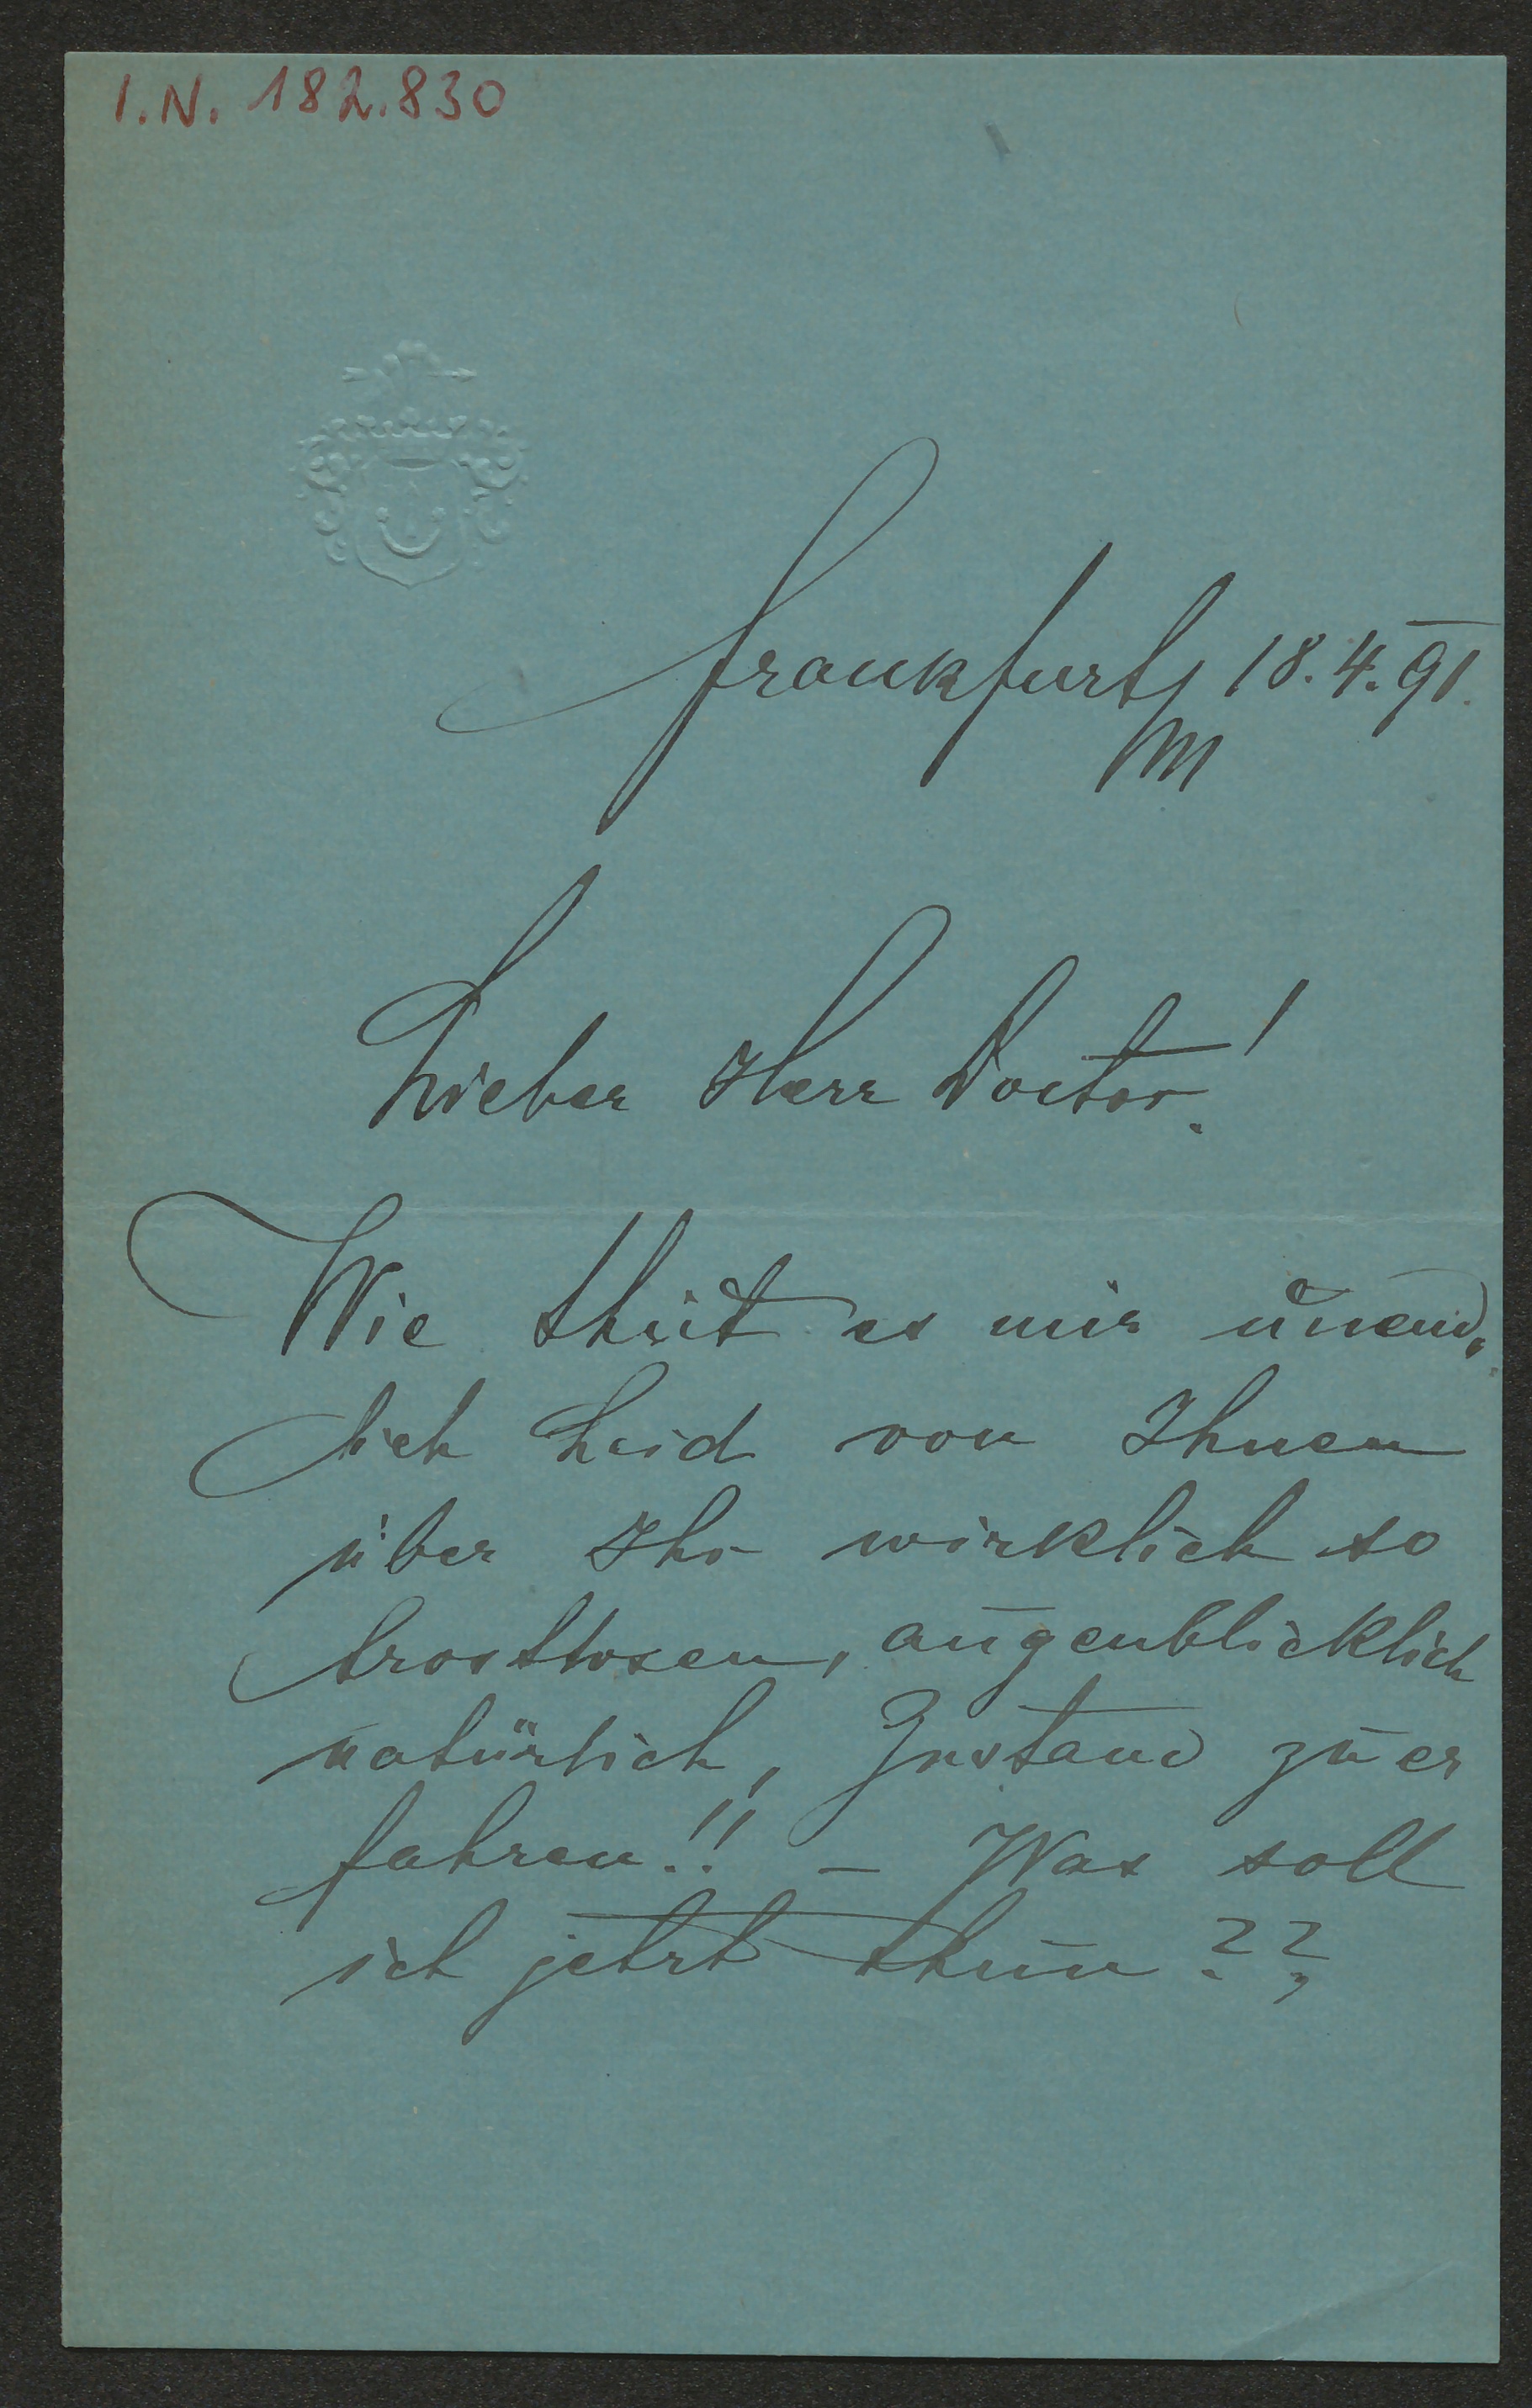 I.N. 182.830
Frankfurt/M 18.4.91.
Lieber Herr Doctor!
Wie thut es mir unend-
lich Leid von Ihnen
über Ihr wirklich so
trostlosen, augenblicklich
natürlich, Zustand zu er
fahren!! – Was soll
ich jetzt thun??